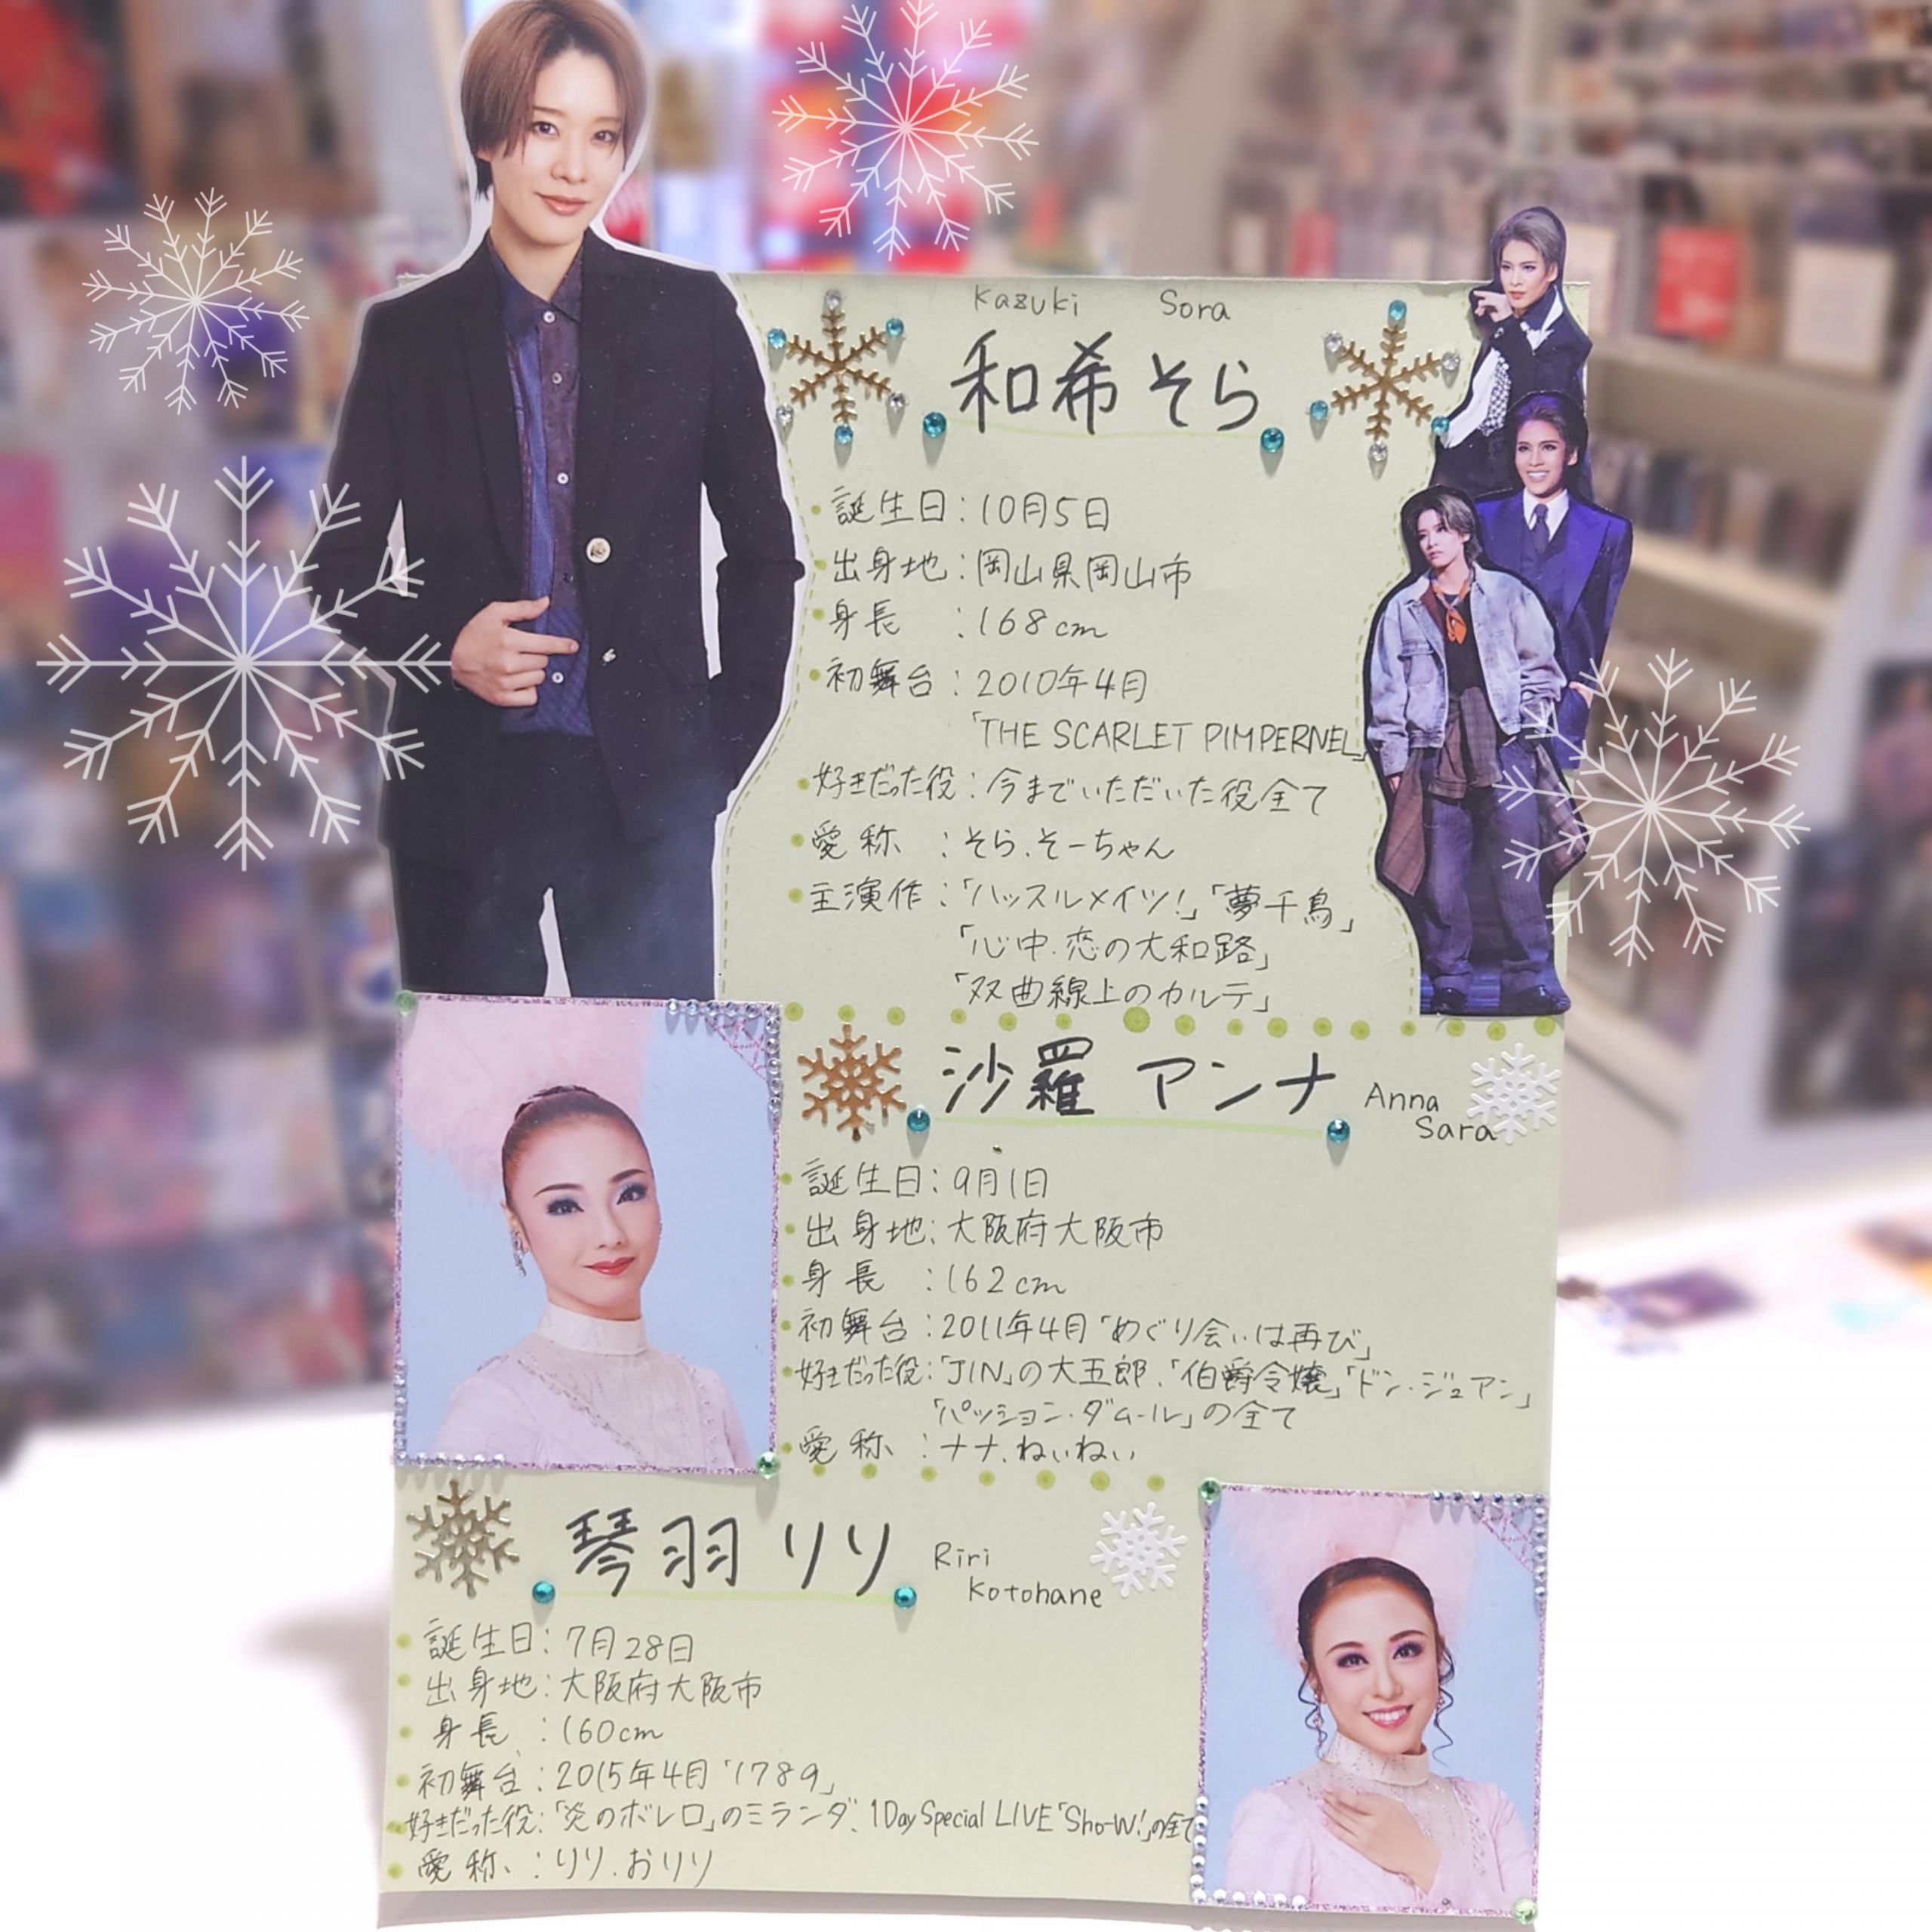 Kazuki Sora
和希そら
・誕生日：10月5日
・出身地：岡山県岡山市
・身長：168cm
・初舞台：2010年4月
「THE SCARLET PIMPERNEL」
・好きだった役：今までいただいた役全て
・愛称：そら、そーちゃん
・主演作：「ハッスルメイツ！」「夢千鳥」
「心中・恋の大和路」
「双曲線上のカルテ」
沙羅 アンナ
Anna
Sara
・誕生日：9月1日
・出身地：大阪府大阪市
・身長：162cm
・初舞台：2011年4月「めぐり会いは再び」
・好きだった役：「JIN」の大五郎、「伯爵令嬢」「ドン・ジュアン」
「パッション・ダムール」の全て
・愛称：ナナ、ねぃねぃ
琴羽 りり
Riri
Kotohane
・誕生日：7月28日
・出身地：大阪府大阪市
・身長：160cm
・初舞台：2015年4月「1789」
・好きだった役：「炎のボレロ」のミランダ、1Day Special LIVE「Sho-W!」の全て
・愛称：りり、おりり